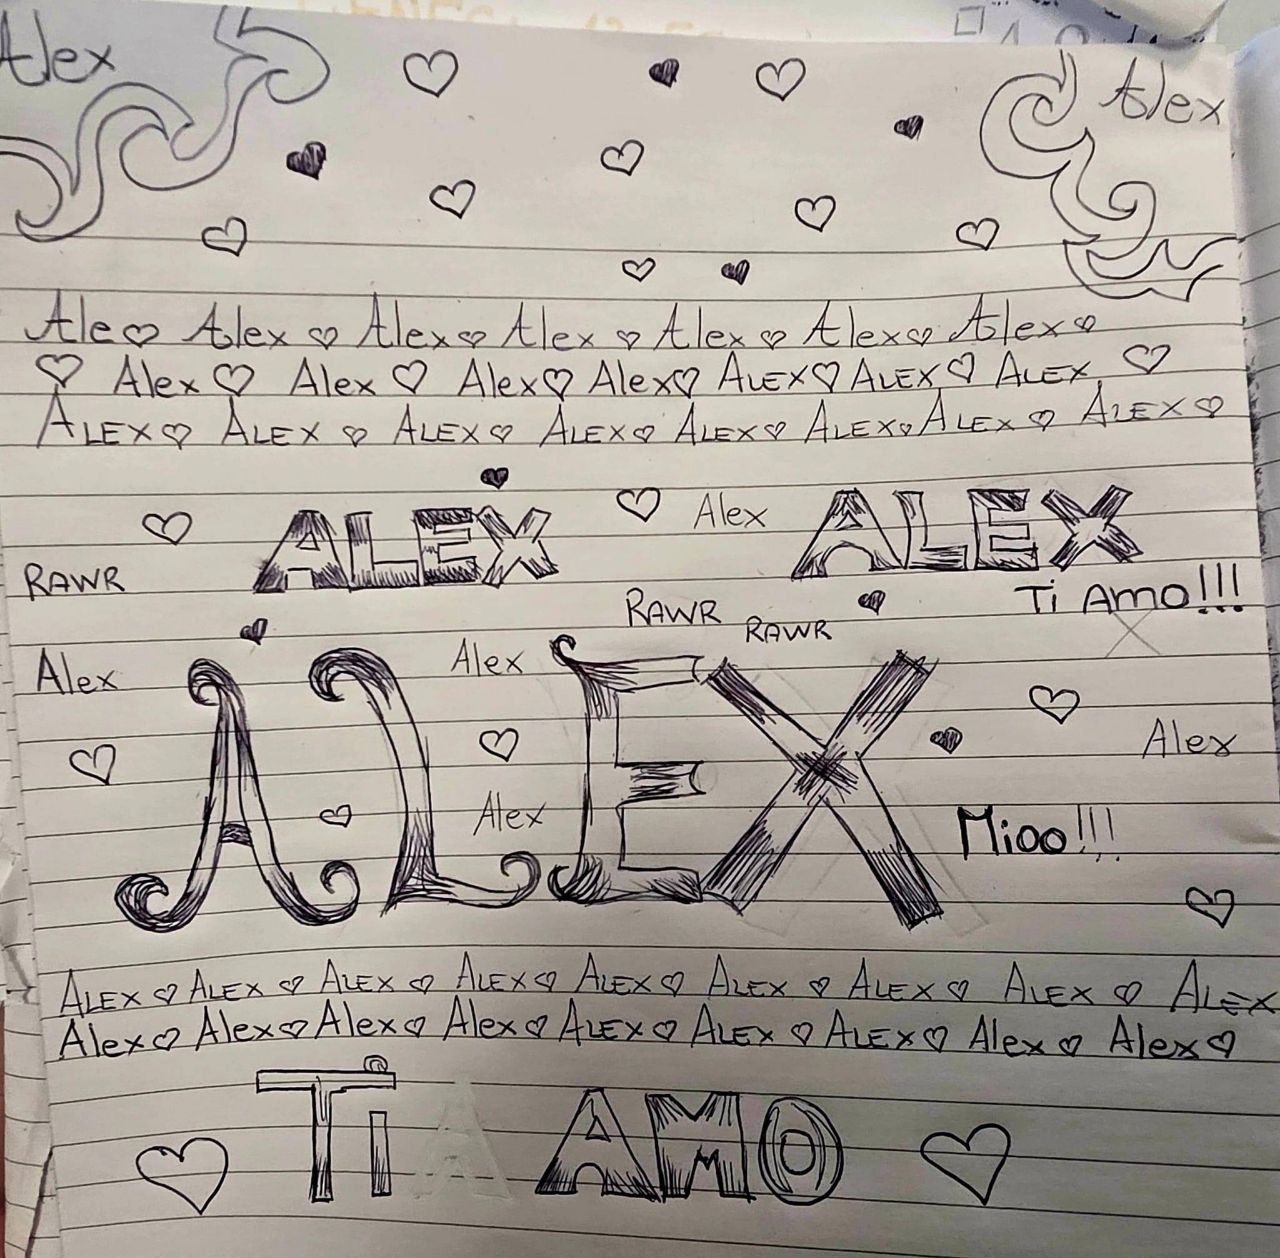 Alex
Alex
Ale♡ Alex ♡ Alex♡ Alex ♡ Alex ♡ Alex♡ Alex♡
♡ Alex♡ Alex ♡ Alex♡ Alex♡ ALEX♡ ALEX ♡ ALEX ♡
ALEX♡ ALEX ♡ ALEX♡ ALEX♡ ALEX♡ ALEX♡ ALEX ♡ ALEX♡
ALEX Alex ALEX
RAWR
Ti AMO!!!
RAWR RAWR
Alex Alex
ALEX
Alex
Alex
Mioo!!!
ALEX♡ ALEX ♡ ALEX ♡ ALEX♡ ALEX♡ ALEX ♡ ALEX ♡ ALEX ♡ ALEX
Alex♡ Alex♡ Alex♡ Alex♡ ALEX♡ ALEX ♡ ALEX♡ Alex ♡ Alex♡
Ti AMO